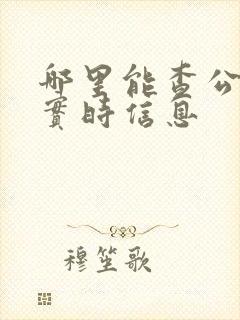 哪里能查公
實時信息
穆笙歌